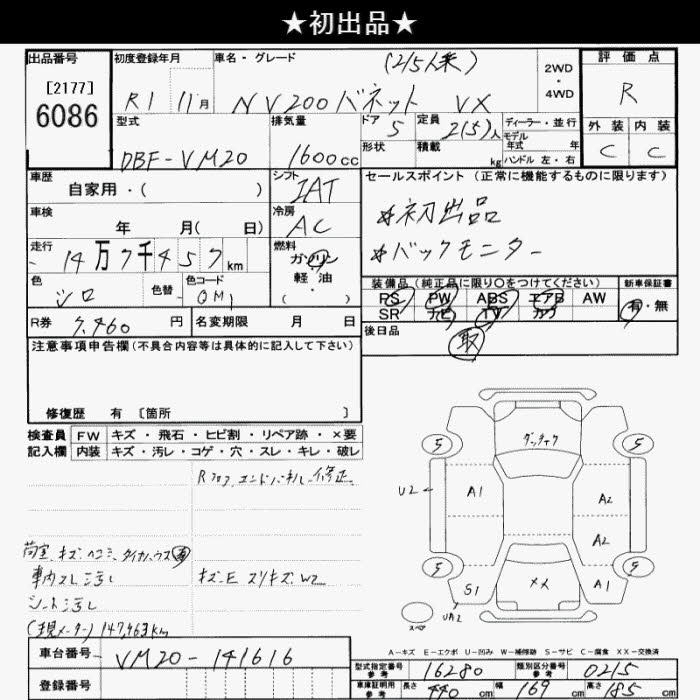 ★初出品★
出品番号
[2177]
6086
初度登録年月
R1 11月
車名・グレード
(2/5人乗)
NV200 バネット VX
2WD・4WD
評価点
R
型式
DBF-VM20
排気量
1600cc
ドア
5
形状
定員
2(5)人
積載 kg
ディーラー・並行
モデル年式 年
ハンドル 左・右
外装 内装
C C
車歴
自家用・( )
シフト
IAT
セールスポイント (正常に機能するものに限ります)
*初出品
*バックモニター
車検
年 月( 日)
冷房
AC
走行
14万7千457km
燃料
ガソリン
軽・油
( )
色
シロ
色替
色コード
QM1
装備品(純正品に限り〇をつけてください)
PS PW ABS エアB AW
SR ナビ TV カワ
新車保証書
有・無
R券 7,460円
名変期限 月 日
後日品
取
注意事項申告欄(不具合内容等は具体的に記入して下さい)
修復歴 有 [箇所 ]
検査員記入欄
FW キズ・飛石・ヒビ割・リペア跡・×要
内装 キズ・汚レ・コゲ・穴・スレ・キレ・破レ
Rフロア、エンドパネル修正
荷室、キズ、ヘコミ、タイヤハウス
車内スレ汚レ
シート汚レ
(現メーター) 147,463km
キズ・E スリキズ W2
5 5
ダッチャク
U2 A1 A2
A2
5 5
S1 XX A1
UA2
スペア
A-キズ E-エクボ U-凹み W-補修跡 S-サビ C-腐食 XX-交換済
車台番号
VM20-141616
登録番号
型式指定番号 参考 16280
類別区分番号 参考 0215
車庫証明用 参考 長さ 440cm 幅 169cm 高さ 185cm